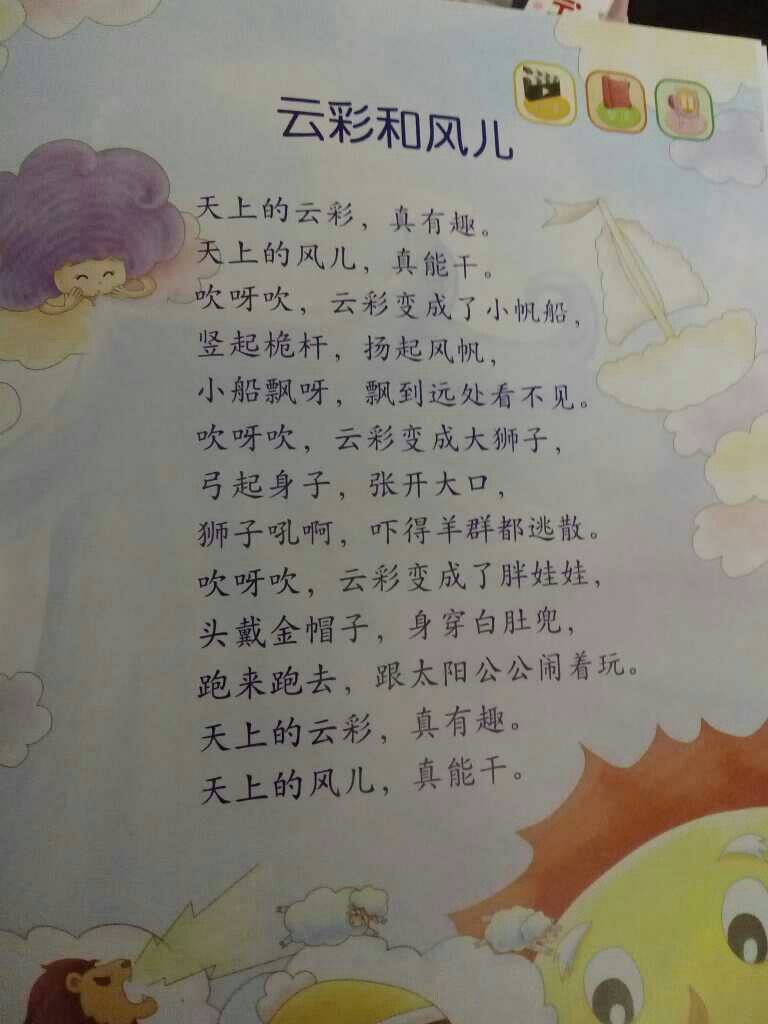 云彩和风儿
天上的云彩，真有趣。
天上的风儿，真能干。
吹呀吹，云彩变成了小帆船，
竖起桅杆，扬起风帆，
小船飘呀，飘到远处看不见。
吹呀吹，云彩变成大狮子，
弓起身子，张开大口，
狮子吼啊，吓得羊群都逃散。
吹呀吹，云彩变成了胖娃娃，
头戴金帽子，身穿白肚兜，
跑来跑去，跟太阳公公闹着玩。
天上的云彩，真有趣。
天上的风儿，真能干。